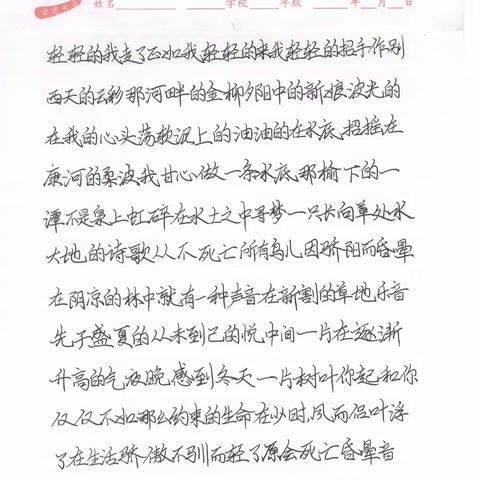 姓名 学校 年级 年 月 日
轻轻的我走了正如我轻轻的来我轻轻的招手作别
西天的云彩那河畔的金柳夕阳中的新娘波光的
在我的心头荡软泥上的油油的在水底招摇在
康河的柔波我甘心做一条水底那榆下的一
潭不是泉上虹碎在水土之中寻梦一只长向草处水
大地的诗歌从不死亡所有鸟儿因骄阳而昏晕
在阴凉的林中就有一种声音在新割的草地乐音
先于盛夏的从未到已的悦中间一片在逐渐
升高的气夜晚感到冬天一片树叶你起和你
仅仅不如那么约束的生命在少时风而侣叶浮
了在生活骄傲不驯而轻了原会死亡昏晕音